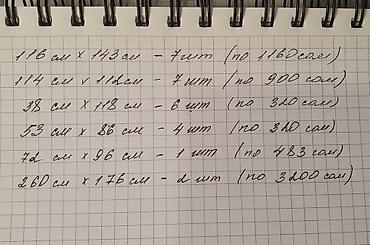 116 см х 143 см - 7 шт (по 1160 сом)
114 см х 112 см - 7 шт (по 900 сом)
38 см х 118 см - 6 шт (по 320 сом)
53 см х 86 см - 4 шт (по 320 сом)
72 см х 96 см - 1 шт (по 483 сом)
260 см х 176 см - 2 шт (по 3200 сом)